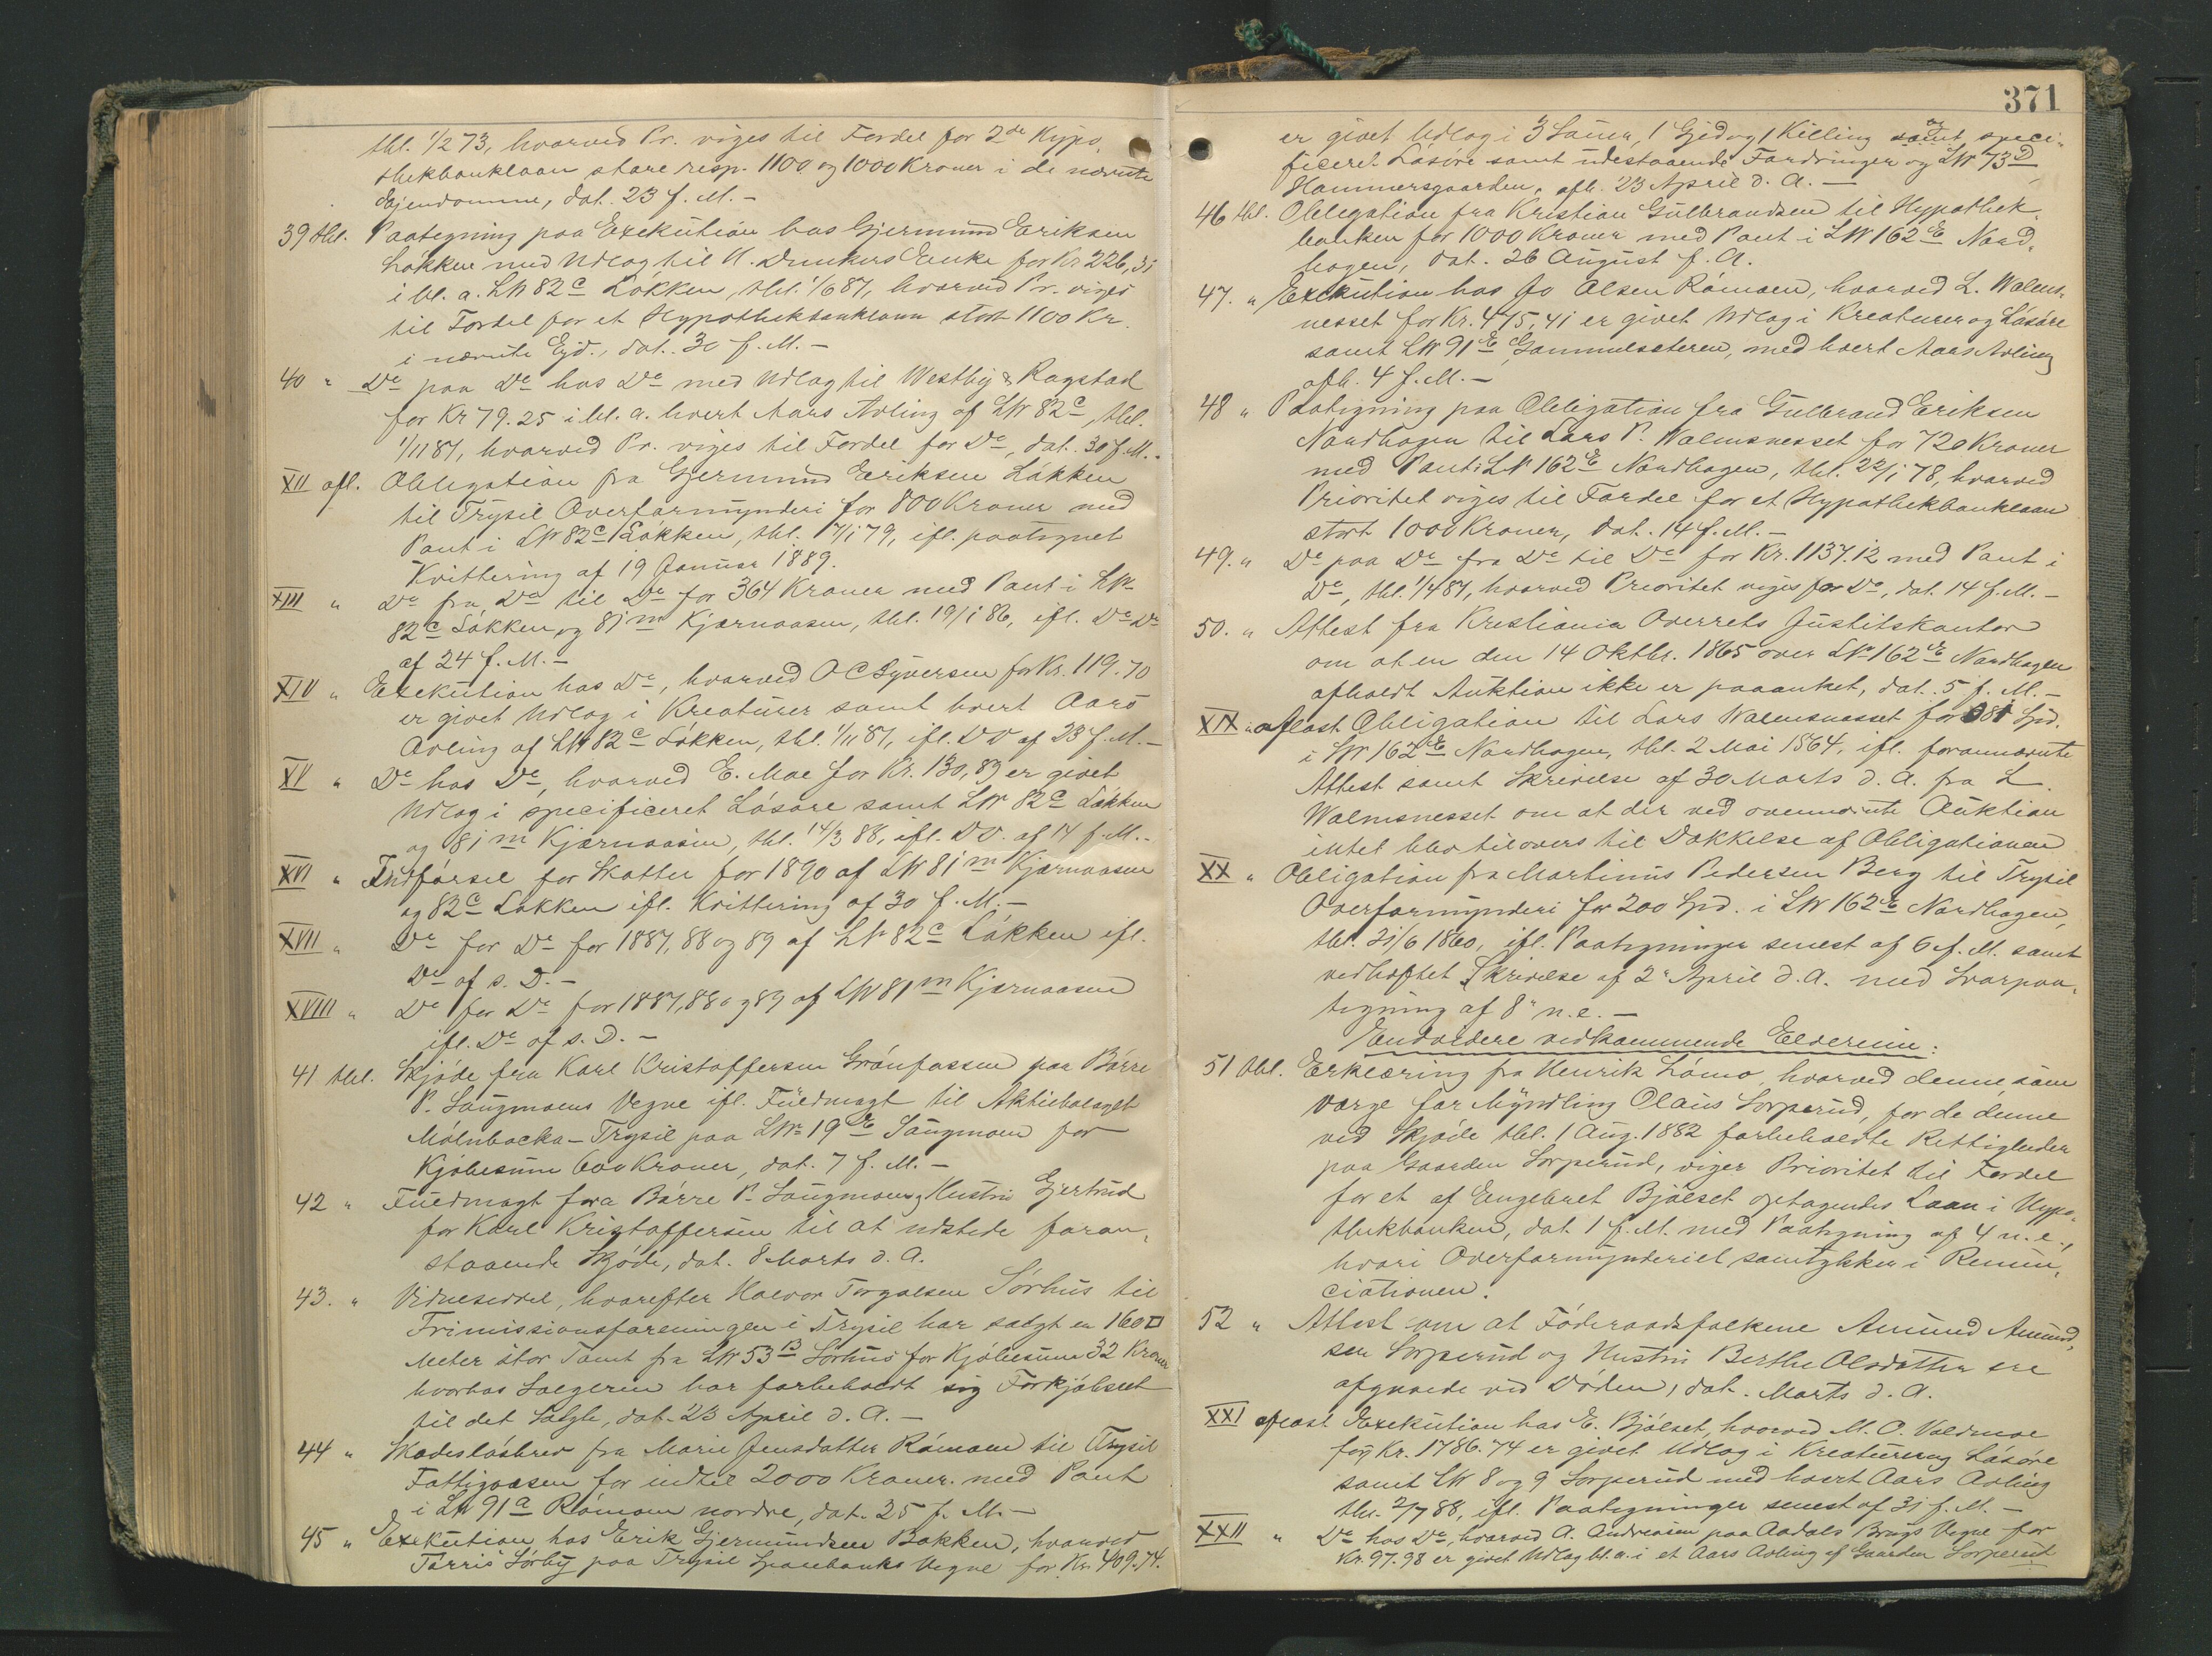 thl. 1/2 73, hvorved Pr. viges til Fordel for 2de Hypo-
thekbanklaan store resp. 1100 og 1000 Kroner i de nævnte
Ejendomme, dat. 23 f. M. –
39 thl. Paategning paa Exekution hos Gjermund Eriksen
Løkken med Udlog til H. Dunkers Enke for Kr 226,31
i bl. a. LN 82c Løkken, thl. 1/6 87, hvorved Pr. viges
til Fordel for et Hypothekbanklaan stort 1100 Kr.
i nævnte Ejd., dat. 30 f. M. –
40 " Do paa Do hos Do med Udlog til Westby & Rogstad
for Kr 79.25 i bl. a. hvert Aars Avling af LN 82c, thl.
1/11 87, hvorved Pr. viges til Fordel for Do, dat. 30 f. M. –
XII afl. Obligation fra Gjermund Eriksen Løkken
til Trysil Overformynderi for 800 Kroner med
Pant i LN 82c Løkken, thl. 7/1 79, ifl. paategnet
Kvittering af 19 Januar 1889.
XIII " Do fra Do til Do for 364 Kroner med Pant i LN
82c Løkken og 81m Kjærnaasen, thl. 19/1 86, ifl. Do Do
af 24 f. M. –
XIV " Exekution hos Do, hvorved O C Syversen for Kr. 119.70
er givet Udlog i Kreaturer samt hvert Aars
Avling af LN 82c Løkken, thl. 1/11 87, ifl. DD af 23 f. M. –
XV " Do hos Do, hvorved E. Moe for Kr. 130,89 er givet
Udlog i specificeret Løsøre samt LN 82c Løkken
og 81m Kjærnaasen, thl. 14/3 88, ifl. DD. af 14 f. M. –
XVI " Indførsel for Skatter for 1890 af LN 81m Kjærnaasen
og 82c Løkken ifl. Kvittering af 30 f. M. –
XVII " Do for Do for 1887, 88 og 89 af LN 82c Løkken ifl.
Do af s. D. –
XVIII " Do for Do for 1887, 88 og 89 af LN 81m Kjærnaasen
ifl. Do af s. D. –
41 thl. Skjøde fra Karl Kristoffersen Grønfossen paa Børre
P. Laugmoens Vegne ifl. Fuldmagt til Aktiebolaget
Mølnbacka-Trysil paa LN 19E Laugmoen for
Kjøbesum 600 Kroner, dat. 7 f. M. –
42 " Fuldmagt fra Børre P. Laugmoen og Hustru Gjertrud
for Karl Kristoffersen til at udstede foran-
staaende Skjøde, dat. 8 Marts d. A.
43. " Vidneseddel, hvorefter Halvor Torgalsen Sørhus til
Frimissionsforeningen i Trysil har solgt en 160 □
Meter stor Tomt fra LN 53B Sørhus for Kjøbesum 32 Kroner
hvorhos Sælgeren har forbeholdt sig Forkjøbsret
til det Solgte, dat. 23 April d. A. –
44 " Skadesløsbrev fra Marie Jensdatter Rømoen til Trysil
Fattigvæsen for indtil 2000 Kroner med Pant
i LN 91a Rømoen nordre, dat. 25 f. M. –
45 " Exekution hos Erik Gjermundsen Bakken, hvorved
Tørris Sørby paa Trysil Sparebanks Vegne for Kr. 409.74.
371
er givet Udlog i 3 Sauer, 1 Gjed og 1 Killing samt speci-
ficeret Løsøre samt udestaaende Fordringer og LN 73D
Hammersgaarden, afh. 23 April d. A. –
46 thl. Obligation fra Kristian Gulbrandsen til Hypothek-
banken for 1000 Kroner med Pant i LN 162E Nord-
hagen, dat. 26 August f. A.
47. " Exekution hos Jo Olsen Rømoen, hvorved L. Walms-
nesset for Kr. 475,41 er givet Udlog i Kreaturer og Løsøre
samt LN 91E Gammelsæteren, med hvert Aars Avling
afh. 4 f. M. –
48 " Paategning paa Obligation fra Gulbrand Eriksen
Nordhagen til Lars P. Walmsnesset for 720 Kroner
med Pant i LN 162E Nordhagen, thl. 22/1 78, hvorved
Prioritet viges til Fordel for et Hypothekbanklaan
stort 1000 Kroner, dat. 14 f. M. –
49. " Do paa Do fra Do til Do for Kr. 1137.12 med Pant i
Do, thl. 1/4 87, hvorved Prioritet viges for Do, dat. 14 f. M. –
50. " Attest fra Kristiania Overrets Justitskontor
om at en den 14 Oktbr. 1865 over LN 162E Nordhagen
afholdt Auktion ikke er paaanket, dat. 5 f. M. –
XIX " aflæst Obligation til Lars Walmsnesset for 81 Spd.
i LN 162E Nordhagen, thl. 2 Mai 1864, ifl. forannævnte
Attest samt Skrivelse af 30 Marts d. A. fra L.
Walmsnesset om at der ved ovennævnte Auktion
intet blev tilovers til Dækkelse af Obligationen
XX " Obligation fra Martinus Pedersen Berg til Trysil
Overformynderi for 200 Spd. i LN 162E Nordhagen,
thl. 21/6 1860, ifl. Paategninger senest af 6 f. M. samt
vedhæftet Skrivelse af 2 April d. A. med Svarpaa-
tegning af 8 n. e. –
Endvidere vedkommende Elverum:
51 thl. Erklæring fra Henrik Lømo, hvorved denne som
Værge for Myndling Olaus Sorperud, for de denne
ved Skjøde thl. 1 Aug. 1882 forbeholdte Rettigheder
paa Gaarden Sorperud, viger Prioritet til Fordel
for et af Engebret Bjølset optagendes Laan i Hypo-
thekbanken, dat. 1 f. M. med Paategning af 4 n. e.,
hvori Overformynderiet samtykker i Renun-
ciationen.
52 " Attest om at Føderaadsfolkene Amund Amund-
sen Sorperud og Hustru Berthe Olsdatter ere
afgaaede ved Døden, dat. Marts d. A.
XXI aflæst Exekution hos E. Bjølset, hvorved M. O. Voldmoe
for Kr. 1786.74 er givet Udlog i Kreaturer og Løsøre
samt LN 8 og 9 Sorperud med hvert Aars Avling
thl. 2/7 88, ifl. Paategninger senest af 31 f. M. –
XXII " Do hos Do, hvorved A. Andreasen paa Aadals Brugs Vegne for
Kr. 97.98 er givet Udlog bl. a. i et Aars Avling af Gaarden Sorperud